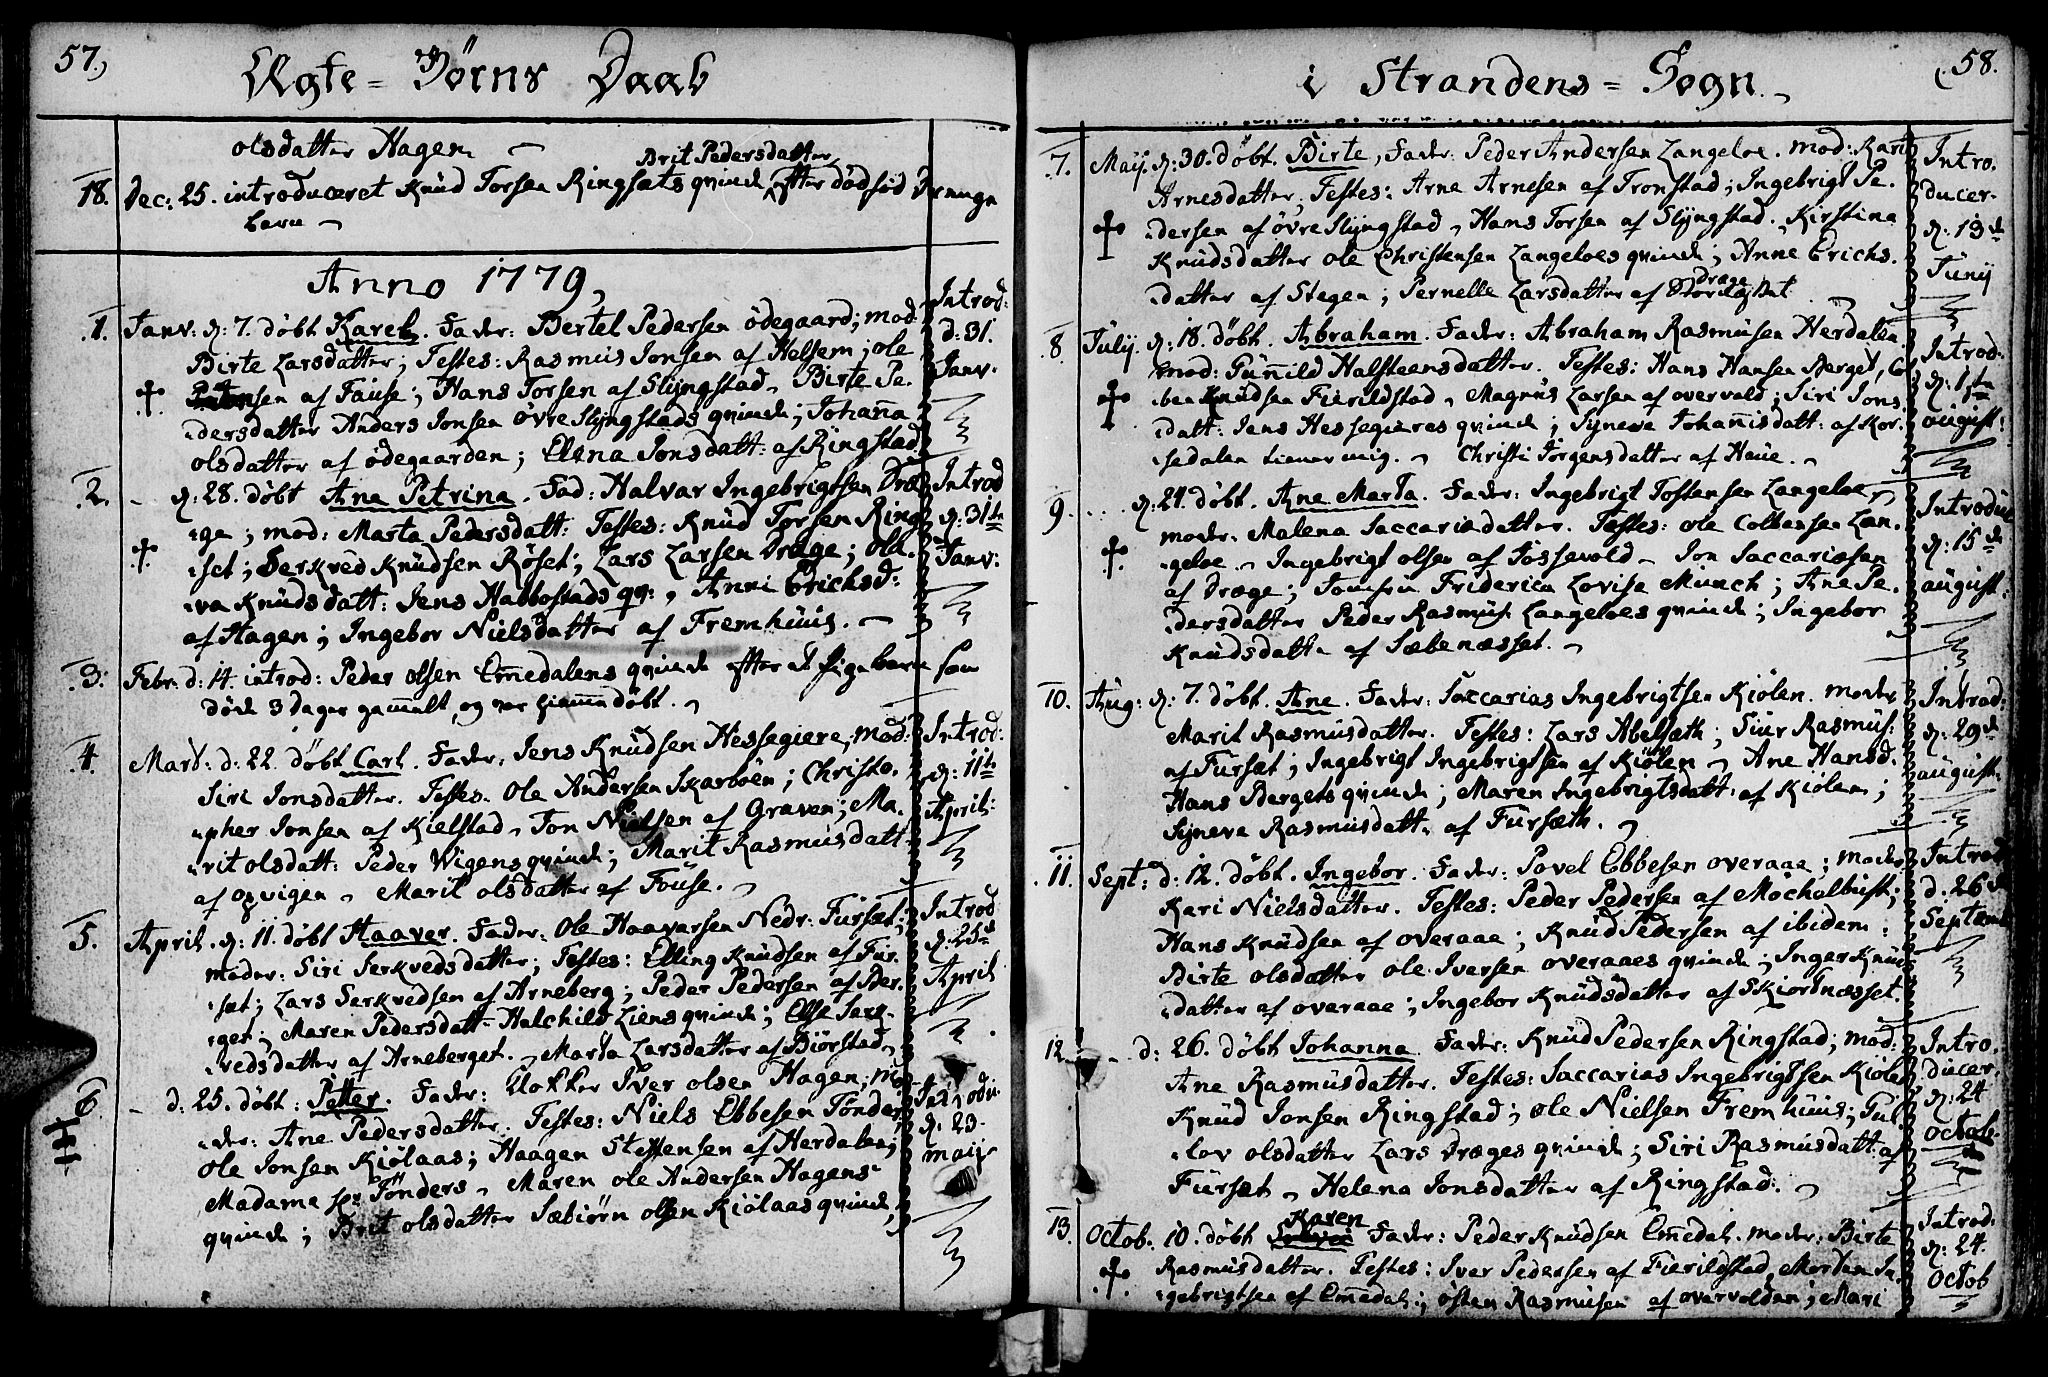 57.)
Ægte = Börns Daab
olsdatter Hagen
Brit Pedersdatter
18. Dec: 25. introduceret Knud Torsen Ringsæts qvinde, efter dödföd Drenge
barn
Anno 1779,
1. Janv: d: 7. döbt Karen. Fader: Bertel Pedersen ödegaard; mod: Introd:
Birte Larsdatter; Testes: Rasmus Jonsen af Helsem; ole d: 31.
Janv:
sen af Fause; Hans Torsen af Slyngstad, Birte Pe-
dersdatter Anders Jonsen övre Slyngstads qvinde; Johanna
olsdatter af ödegaarden; Elena Jonsdatt: af Ringstad.
2. - d: 28. döbt Ane Petrina. Fad: Halvar Ingebrigtsen Dræ- Introd
ge; mod: Marta Pedersdatt: Testes: Knud Torsen Ring- d: 31te
set; Serkved Knudsen Röset; Lars Larsen Dræge; ola- Janv:
va Knudsdatt: Jens Habbostads qv:, Anni Erichsd:
af Hagen; Ingebor Nielsdatter af Fremhuus.
3. Febr: d: 14. introd: Peder olsen Emedalens qvinde efter et Pigebarn som
döde 3 Dager gamelt, og var hiemedöbt.
4. Mart: d: 22. döbt Carl. Fader: Jens Knudsen Hessegiere, mod: Introd:
Siri Jonsdatter. Testes: Ole Andersen Skarboen; Christo- d: 11te
pher Jonsen af Kielstad, Jon Nielsen af Graven; Ma- April:
rit olsdatt: Peder Wigens qvinde; Marit Rasmusdatt
af opvigen, Marit olsdatter af Fouse.
5. April. d: 11. döbt Haaver. Fader: Ole Haavarsen Nedr: Furset; Introd
moder: Siri Serkvedsdatter; Testes: Elling Knudsen af Fur- d: 25de
set; Lars Serkvedsen af Arneberg; Peder Pedersen af Ber- April
get; Maren Pedersdatt: Halchild Liens qvinde; Else Serk-
vedsdatter af Arneberget. Marta Larsdatter af Biörstad,
6. - d: 25. döbt: Petter. Fader: Klokker Iver olsen Hagen; mo- Introdu-
der: Ane Pedersdatter. Testes: Niels Ebbesen Tönder, d: 23.
ole Jonsen Kiölaas; Haagen Steffensen af Herdalen; maij
Madame sr: Tönders, Maren ole Andersen Hagens
qvinde; Brit olsdatter Sæbiörn olsen Kiölaas qvinde,
58.
i Strandens = Sogn.
7. Maij. d: 30. döbt. Birte, Fader: Peder Andersen Langeloe. mod: Kari Intro-
Arnesdatter, Testes: Arne Arnesen af Tronstad; Ingebrigt Pe- ducer-
dersen af övre Slyngstad, Hans Torsen af Slyngstad, Kirstina d: 13de
Knudsdatter ole Christensen Langeloes qvinde; Anne Erichs- Junij
datter af Stegen; Pernelle Larsdatter af Dræge
8 July. d: 18. döbt. Abraham. Fader: Abraham Rasmusen Herdalen. Introd:
mod: Gunild Halsteensdatter. Testes: Hans Hansen Berget, d: 1ste
ben Knudsen Fierildstad, Magnus Larsen af overvold; Siri Jons- august:
datt: Jens Hessegieres qvinde; Syneva Johannisdatt: af Kor-
sedalen tiener mig. Christi Jörgensdatter af Haue.
9. d: 24. döbt. Ane Marta. Fader: Ingebrigt Tostensen Langeloe, Introduc
moder: Malena Saccariædatter. Testes: ole Colbensen Lan- d: 15de
geloe. Ingebrigt olsen af Fossevold, Jon Saccariæsen august:
af Dræge; Jomfru Friderica Lovise Munch; Ane Pe-
dersdatter Peder Rasmus Langeloes qvinde; Ingebor
Knudsdatter af Sæbenæsset.
10. Aug: d: 7. döbt. Ane. Fader: Saccarias Ingebrigtsen Kiölen. moder Introd:
Marit Rasmusdatter. Testes: Lars Abelsæth; Siur Rasmus: d: 29de
af Furset; Ingebrigt Ingebrigtsen af Kiölen, Ane Hansd. august:
Hans Bergets qvinde; Maren Ingebrigtsdatt: af Kiölen;
Syneva Rasmusdatt: af Fursæth.
11. Sept: d: 12. döbt. Ingebor. Fader: Povel Ebbesen overaae; moder Introd
Kari Nielsdatter. Testes: Peder Pedersen af Mochelbust; d: 26de
Hans Knudsen af overaae; Knud Pedersen af ibidem: Septemb
Birte olsdatter ole Iversen overaaes qvinde; Inger Knuds-
datter af overaae; Ingebor Knudsdatter af Skiortnæsset.
12. - d: 26. döbt Johanna. Fader: Knud Pedersen Ringstad; mod: Intro-
Ane Rasmusdatter. Testes: Saccarias Ingebrigtsen Kiölen ducer.
Knud Jonsen Ringstad; ole Nielsen Fremhuus; Gul- d: 24
lov olsdatter Lars Dræges qvinde; Siri Rasmusdatt: af octob:
Furset, Helena Jonsdatter af Ringstad.
13. Octob: 10. döbt Karen Fader: Peder Knudsen Emedal. moder. Birte Introd:
Rasmusdatter. Testes: Iver Pedersen af Fierildstad, Morten In- d: 24.
gebrigtsen af Emedal; östen Rasmusen af overvolden; Mari octob